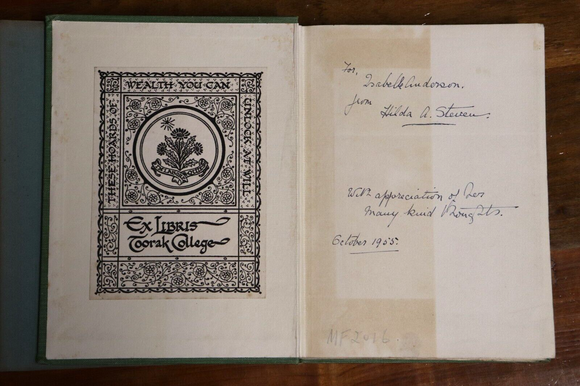 THESE HOARDS OF
WEALTH YOU CAN
UNLOCK AT WILL
EX LIBRIS
Toorak College
For,
Isabelle Anderson.
from
Hilda A. Steven.
With appreciation of her
many kind thoughts.
October 1955.
MF2016